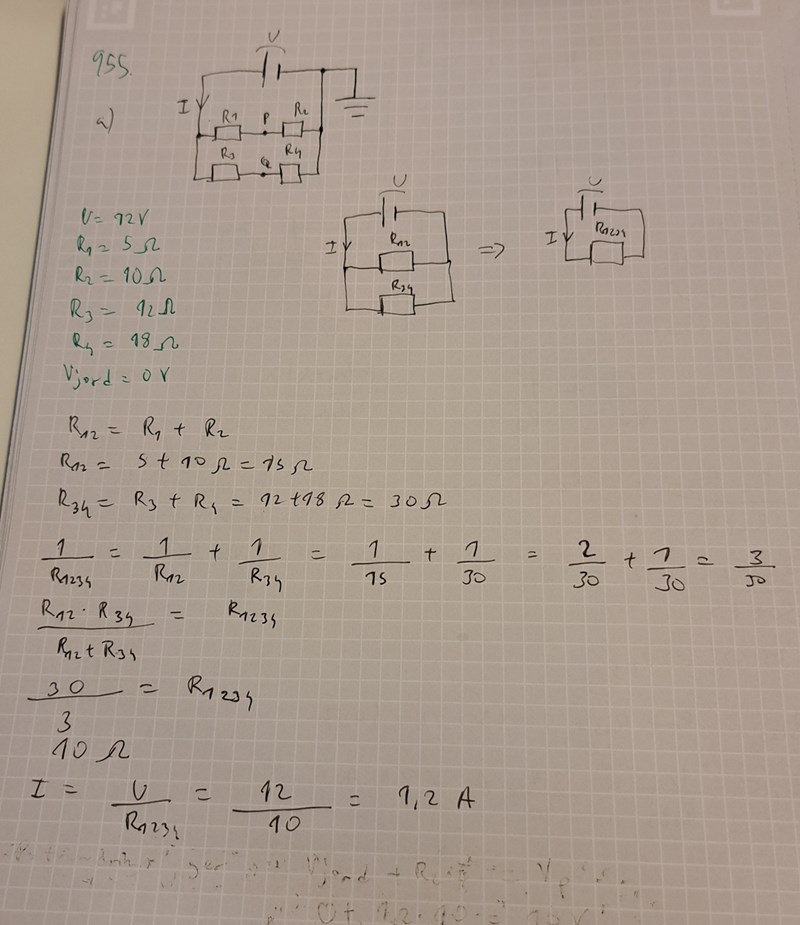 955.
U
I
a)
R1 P R2
R3 Q R4
U
I
R12
R34
=>
U
I
R1234
U = 12V
R1 = 5 Ω
R2 = 10 Ω
R3 = 12 Ω
R4 = 18 Ω
Vjord = 0 V
R12 = R1 + R2
R12 = 5 + 10 Ω = 15 Ω
R34 = R3 + R4 = 12 + 18 Ω = 30 Ω
1/R1234 = 1/R12 + 1/R34 = 1/15 + 1/30 = 2/30 + 1/30 = 3/30
R12 · R34 / R12 + R34 = R1234
30/3 = R1234
10 Ω
I = U/R1234 = 12/10 = 1,2 A
Vjord +